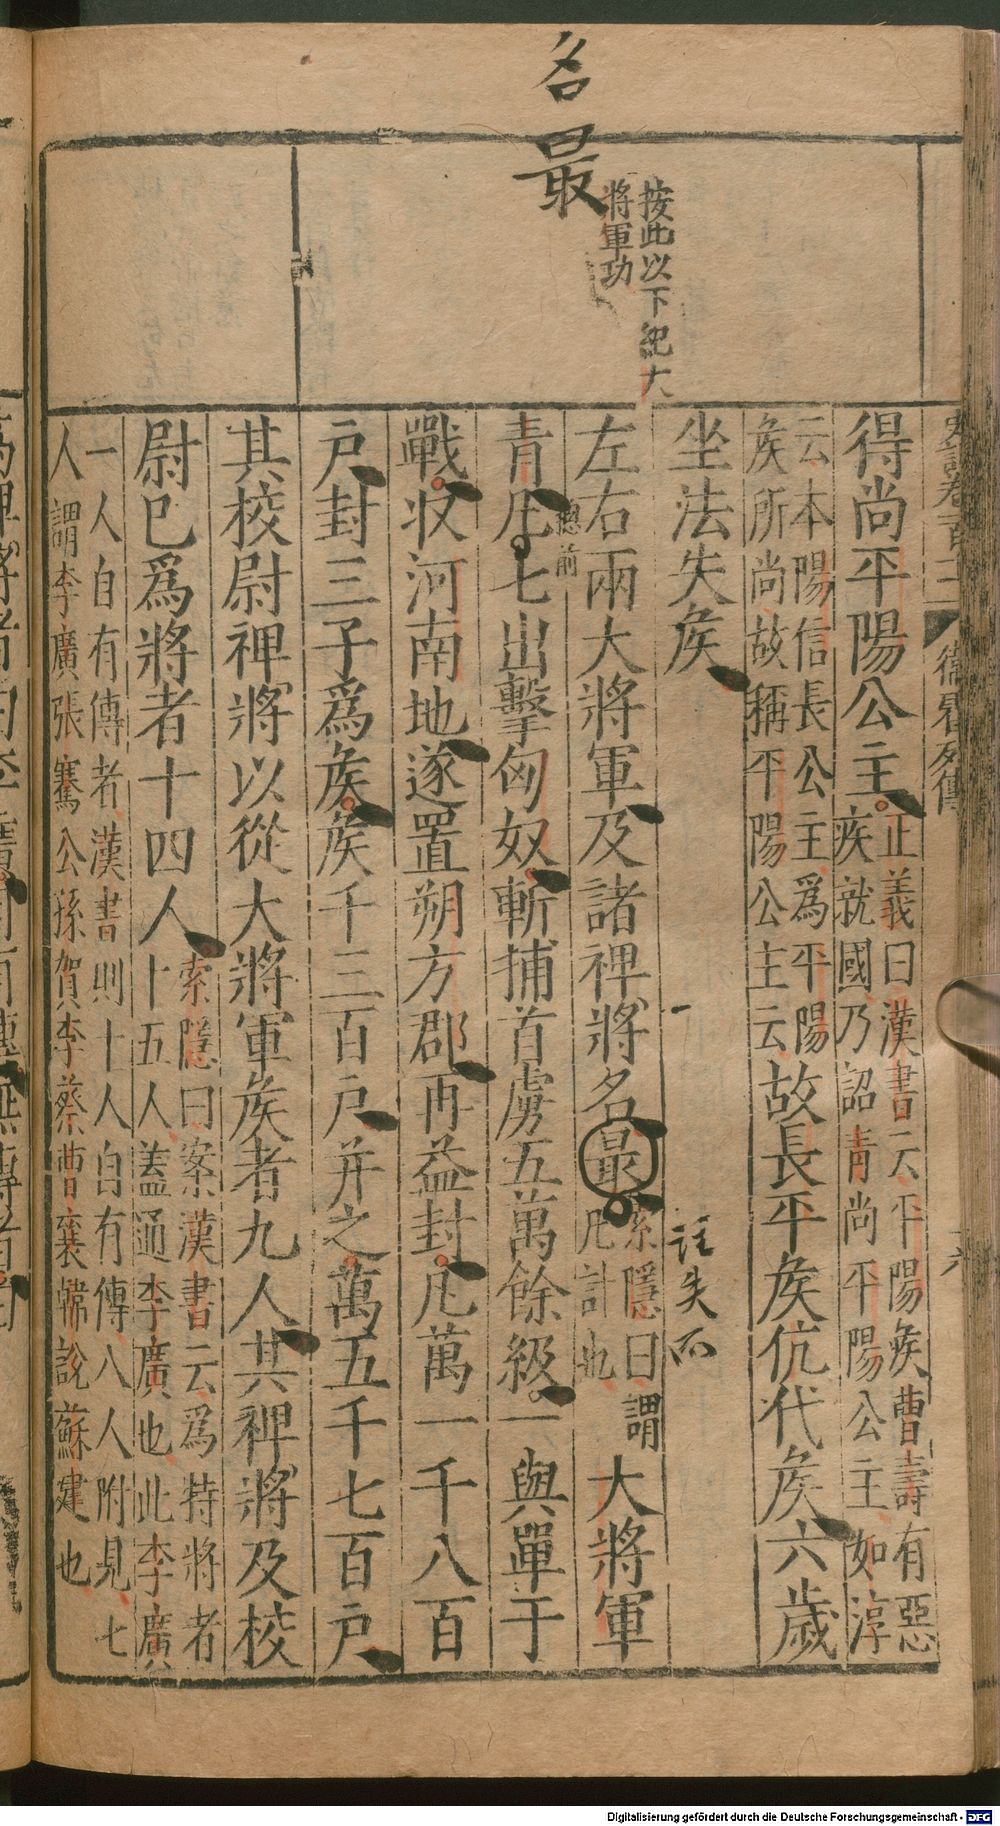 名最
按此以下紀大
將軍功
史記卷百十一
衞霍列傳
十六
得尚平陽公主正義曰漢書云平陽矦曹壽有惡
疾就國乃詔青尚平陽公主如淳
云本陽信長公主爲平陽
矦所尚故稱平陽公主云故長平矦伉代矦六歲
坐法失矦
註失而
左右兩大將軍及諸裨將名最索隱曰謂
凡計也大將軍
總前
青凡七出擊匈奴斬捕首虜五萬餘級一與單于
戰收河南地遂置朔方郡再益封凡萬一千八百
戸封三子爲矦矦千三百戸并之萬五千七百戸
其校尉裨將以從大將軍矦者九人其裨將及校
尉已爲將者十四人索隱曰案漢書云爲特將者
十五人蓋通李廣也此李廣
一人自有傳者漢書則十人自有傳八人附見七
人謂李廣張騫公孫賀李蔡曹襄韓說蘇建也
Digitalisierung gefördert durch die Deutsche Forschungsgemeinschaft - DFG